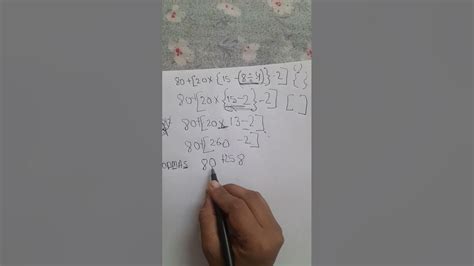 80+[20×{15-(8÷4)}-2] { }
80+[20×{15-2}-2] [ ]
80+[20×13-2]
80+[260-2]
80+258